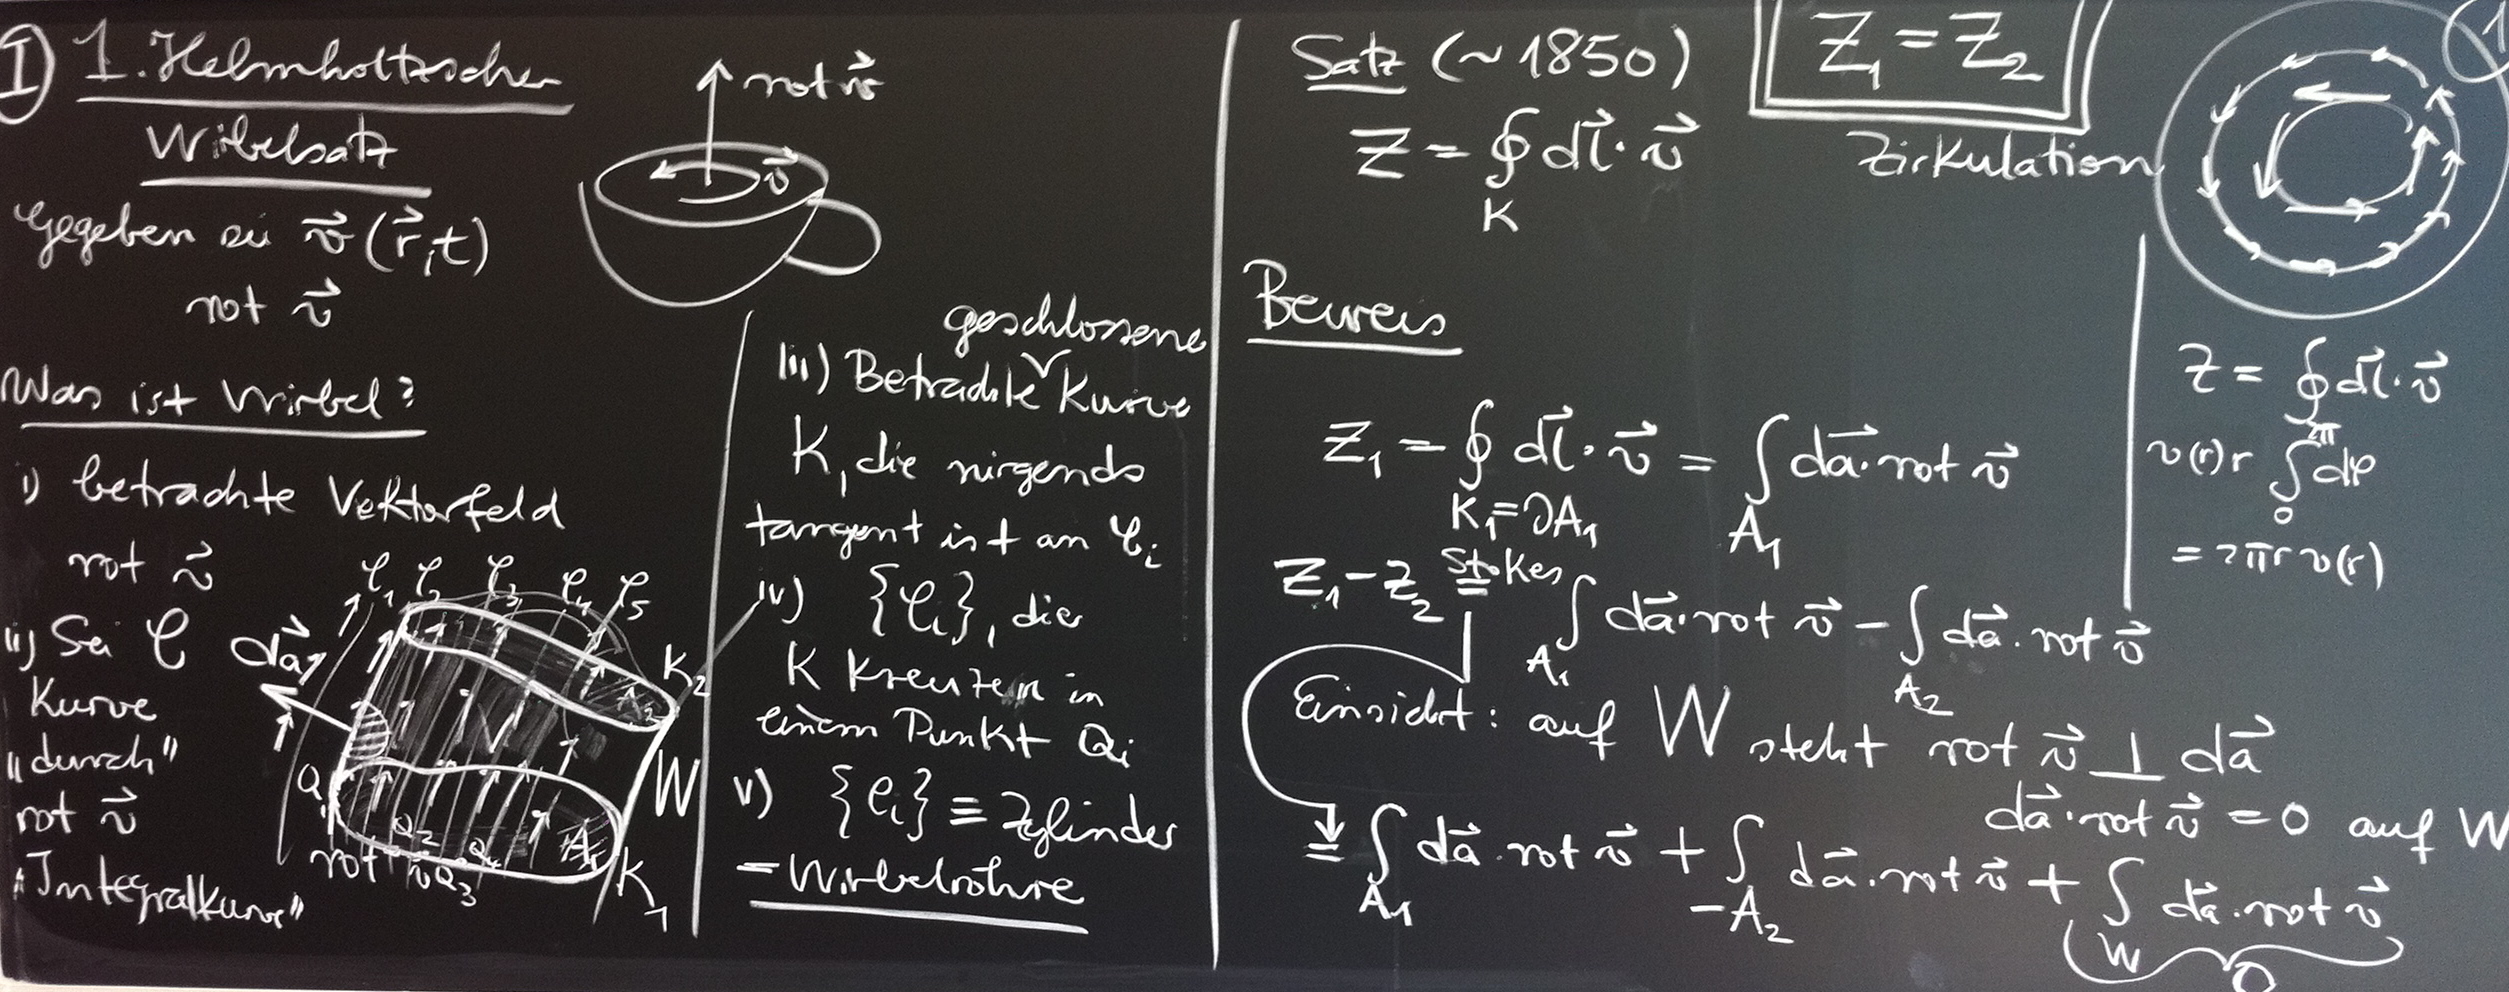 I 1. Helmholtzscher
Wirbelsatz
gegeben sei v⃗(r⃗,t)
rot v⃗
rot v⃗
v⃗
Was ist Wirbel?
i) betrachte Vektorfeld
rot v⃗
ii) Sei ℓ
Kurve
"durch"
rot v⃗
"Integralkurve"
ℓ₁ ℓ₂ ℓ₃ ℓ₄ ℓ₅
da⃗
K₂
A₂
W
Q₁
Q₂
Q₃
Q₄
A₁
K₁
rot v⃗
geschlossene
iii) Betrachte Kurve
K, die nirgends
tangent ist an ℓᵢ
iv) {ℓᵢ}, die
K kreuzen in
einem Punkt Qᵢ
v) {ℓᵢ} ≡ Zylinder
= Wirbelröhre
Satz (~1850)
Z₁ = Z₂
Z = ∮_K dl⃗·v⃗
Zirkulation
Beweis
Z₁ = ∮_{K₁=∂A₁} dl⃗·v⃗ = ∫_{A₁} da⃗·rot v⃗
Z₁ - Z₂ = Stokes ∫_{A₁} da⃗·rot v⃗ - ∫_{A₂} da⃗·rot v⃗
Einsicht: auf W steht rot v⃗ ⊥ da⃗
da⃗·rot v⃗ = 0 auf W
= ∫_{A₁} da⃗·rot v⃗ + ∫_{-A₂} da⃗·rot v⃗ + ∫_W da⃗·rot v⃗
0
1
Z = ∮ dl⃗·v⃗
v(r) r ∫₀^{2π} dφ
= 2πr v(r)